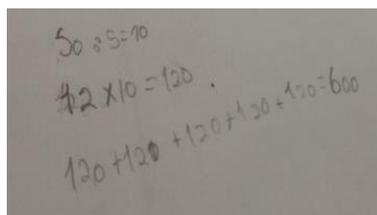 50 : 5 = 10
12 × 10 = 120 .
120 + 120 + 120 + 120 + 120 = 600